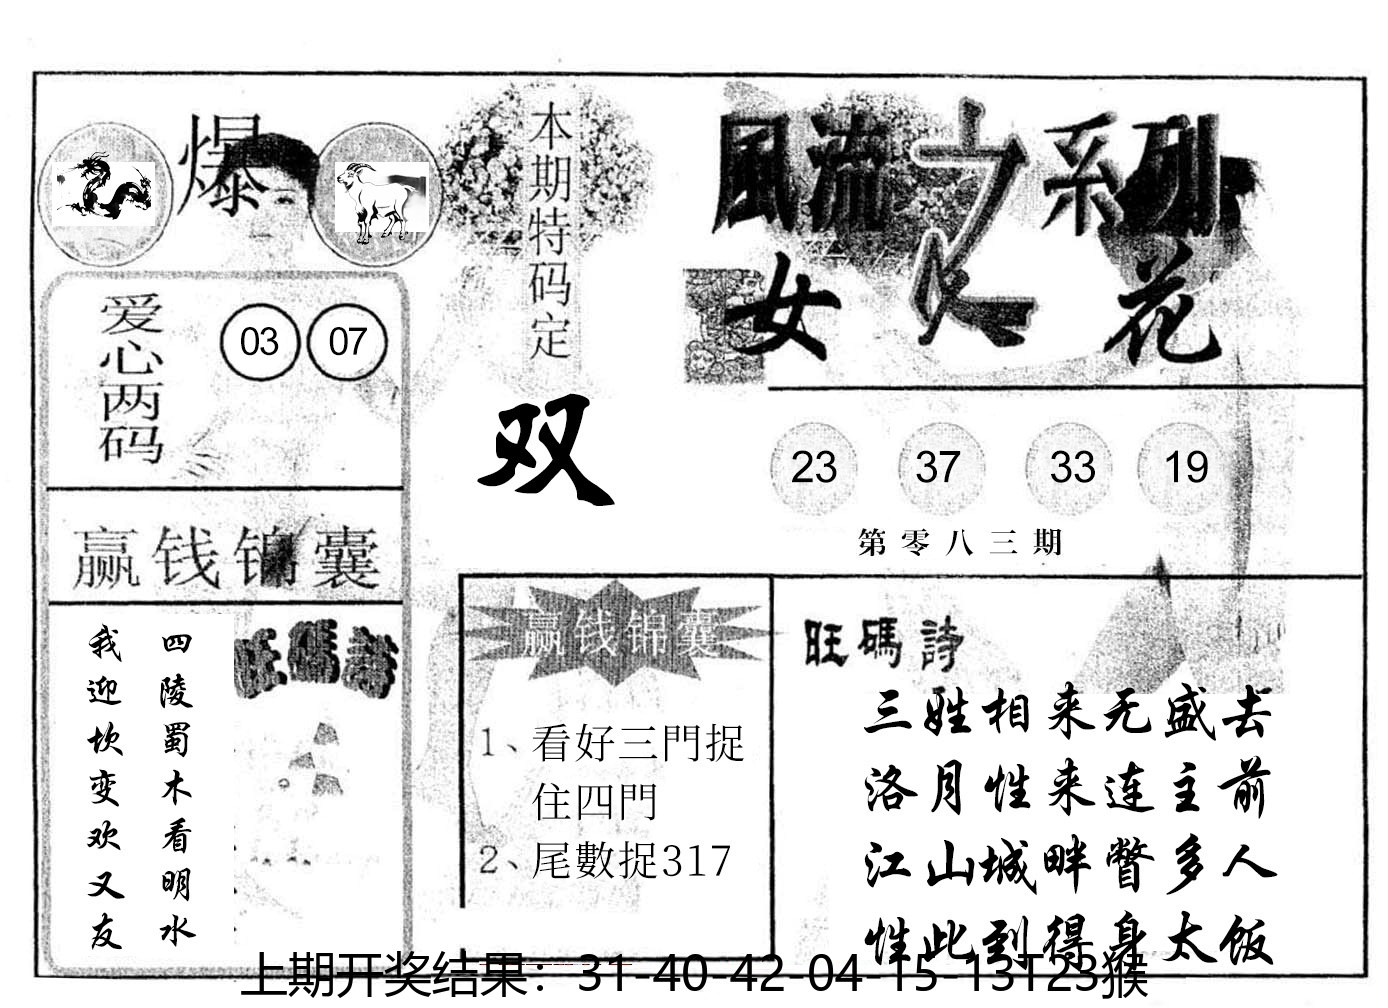 爆
本期特码定
双
風流之系列
女人花
爱心两码
03 07
23 37 33 19
第零八三期
赢钱锦囊
四陵蜀木看明水
我迎坎变欢又友
旺碼詩
赢钱锦囊
1、看好三門捉
住四門
2、尾數捉317
旺碼詩
三姓相来无盛去
洛月性来连主前
江山城畔瞥多人
性此到得身太饭
上期开奖结果：31-40-42-04-15-13T23猴